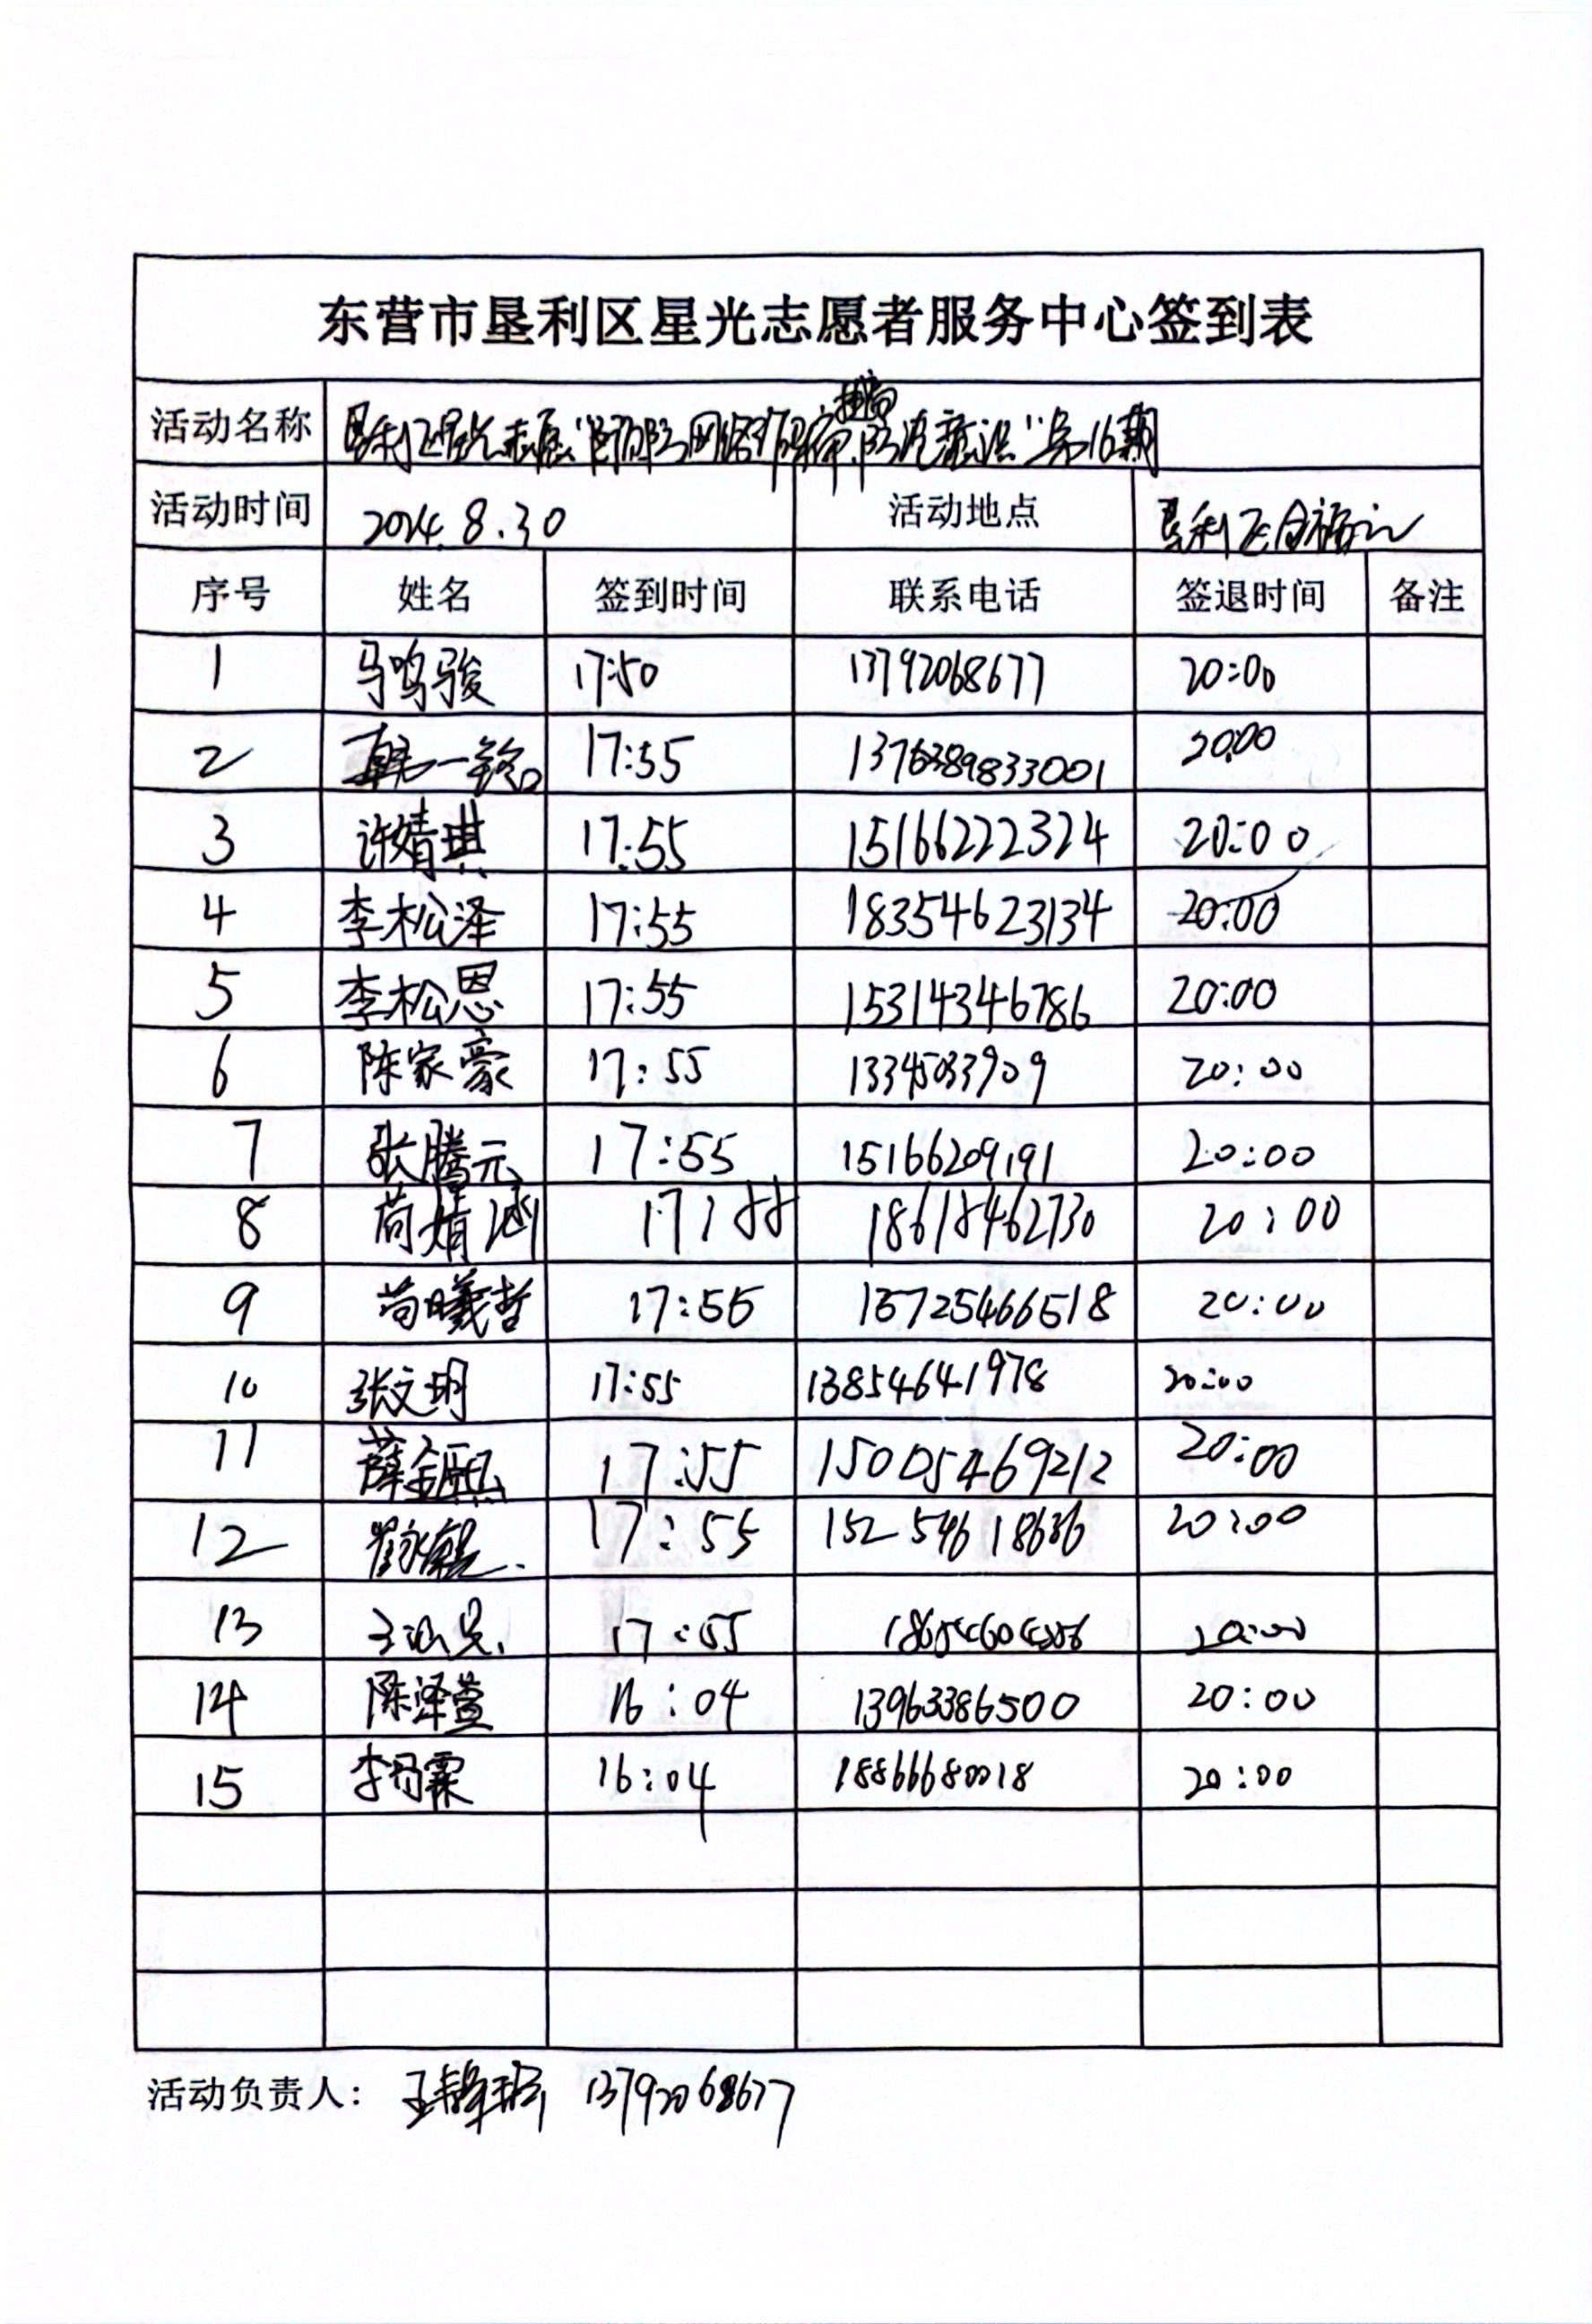 东营市垦利区星光志愿者服务中心签到表
活动名称 垦利区星光志愿“预防网络诈骗 提高防范意识”第16期
活动时间 2024.8.30 活动地点 垦利区
序号 姓名 签到时间 联系电话 签退时间 备注
1 马鸣骏 17:50 13792068677 20:00
2 韩一铭 17:55 20:00
3 许婧琪 17:55 15166222324 20:00
4 李松泽 17:55 18354623134 20:00
5 李松恩 17:55 15314346786 20:00
6 陈家豪 17:55 20:00
7 张腾元 17:55 15166209191 20:00
8 苘婧涵 17:55 18615462730 20:00
9 苘曦哲 17:55 15725466518 20:00
10 张文玥 17:55 13854641978 20:00
11 薛金熙 17:55 15005469212 20:00
12 17:55 15254618636 20:00
13 17:55 20:00
14 陈泽萱 16:04 13963386500 20:00
15 16:04 18866680018 20:00
活动负责人： 13792068677